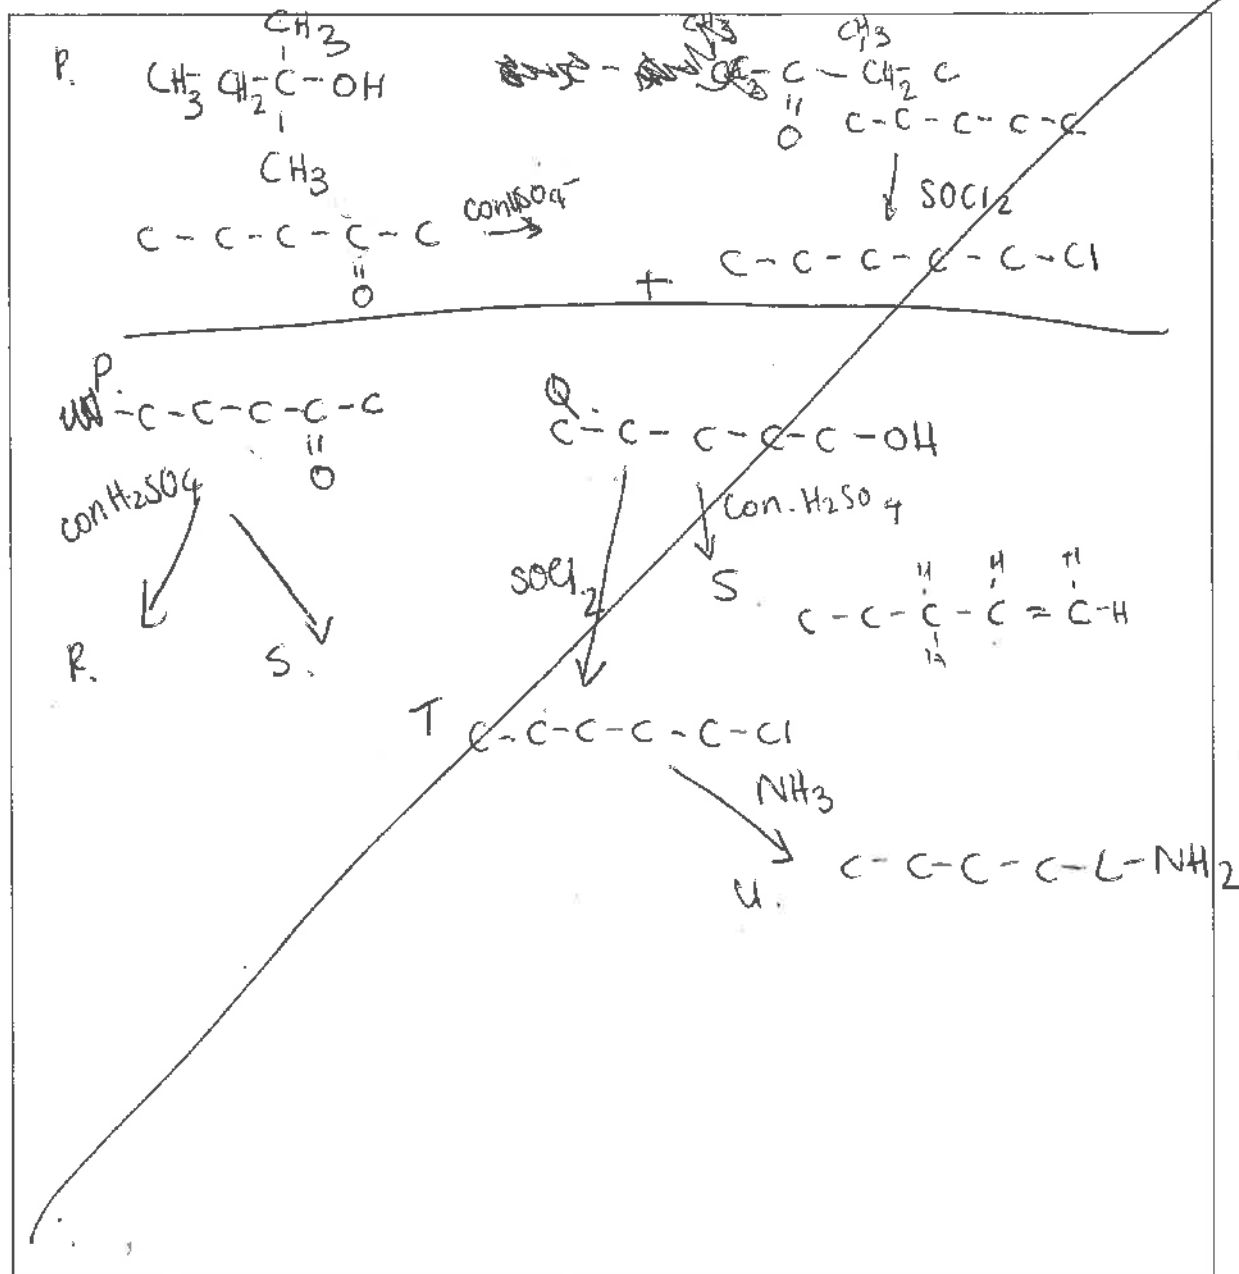 P.
CH3
CH3-CH2-C-OH
CH3
CH3
C-CH2 C
O
C-C-C-C-C
SOCl2
C-C-C-C-C-Cl
C-C-C-C-C
O
+
P.
-C-C-C-C-C
O
con H2SO4
R.
S.
Q
C-C-C-C-C-OH
SOCl2
Con. H2SO4
S
H H H
C-C-C-C=C-H
H
T C-C-C-C-C-Cl
NH3
U. C-C-C-C-C-NH2